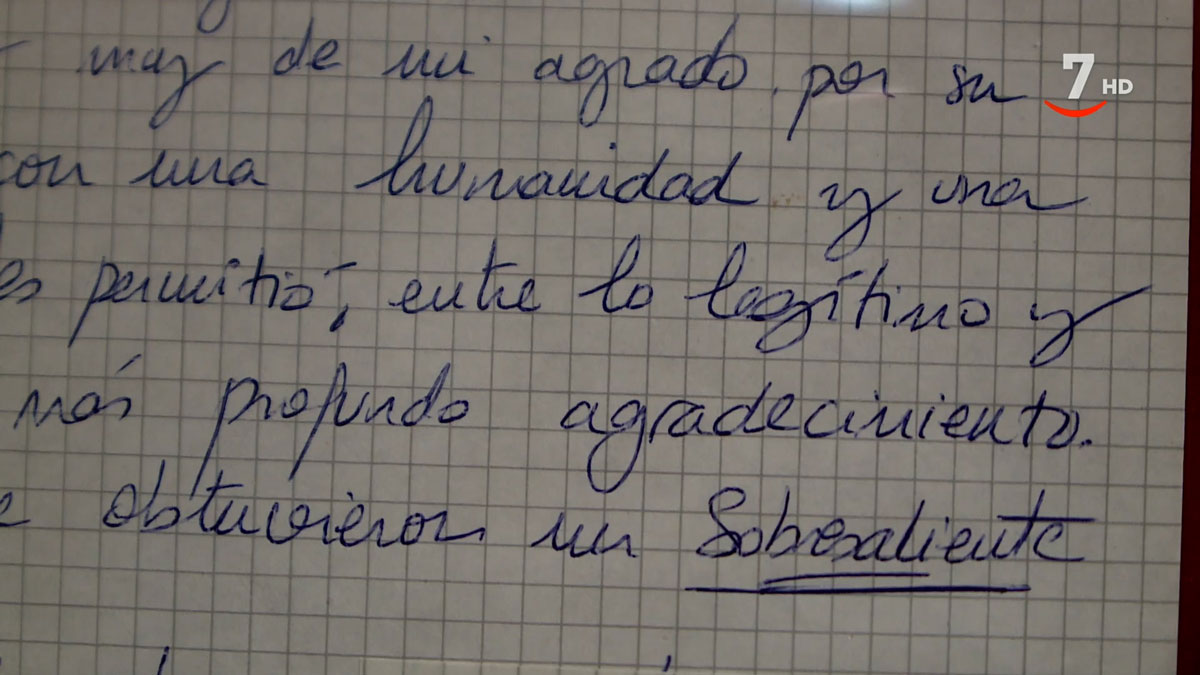 muy de mi agrado. por su
7 HD
con una humanidad y una
permitió, entre lo legítimo y
más profundo agradecimiento.
obtuvieron un Sobresaliente